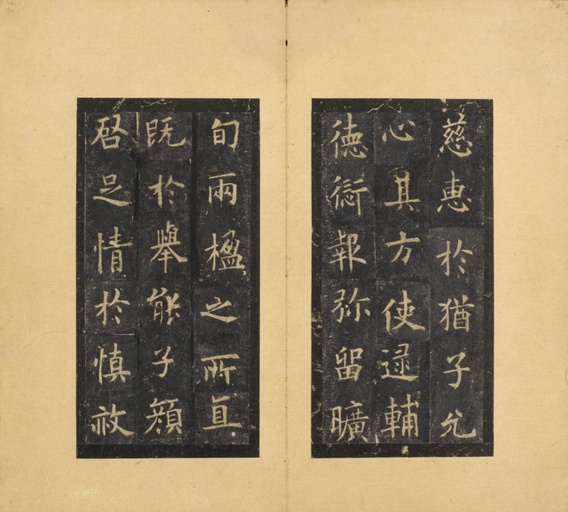 慈惠於猶子允
心其方使輔
德報弥留曠
旬兩楹之所直
既於舉能子顏
啓足情於慎